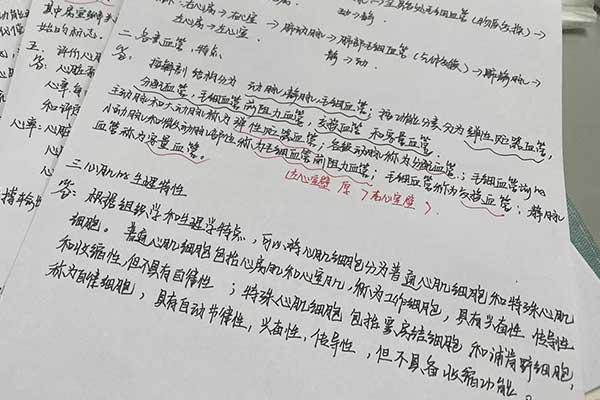 左心房→左心室 肺动脉→肺部毛细血管（气体交换）→肺静脉→
二. 各类血管, 特点
答: 按解剖结构分为 动脉, 静脉, 毛细血管; 按功能分类分为 弹性贮器血管,
分配血管, 毛细血管前阻力血管, 交换血管 和容量血管。
主动脉和大动脉称为 弹性贮器血管; 各级动脉称为分配血管;
小动脉和微动脉 称为毛细血管前阻力血管; 毛细血管称为交换血管; 静脉
血管称为容量血管。
左心室壁 厚 > 右心室壁
三. 心肌的生理特性
答: 根据组织学和生理学特点, 可以将心肌细胞分为普通心肌细胞和特殊心肌
细胞。普通心肌细胞包括心房肌和心室肌, 称为工作细胞, 具有兴奋性 传导性
和收缩性, 但不具有自律性; 特殊心肌细胞 包括窦房结细胞 和浦肯野细胞,
称为自律细胞, 具有自动节律性, 兴奋性, 传导性, 但不具备收缩功能。
五. 评价心脏
答: 心脏